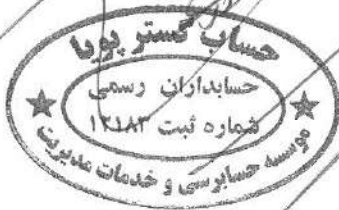 حساب گستر پویا
حسابداران رسمی
شماره ثبت ۱۲۱۸۳
موسسه حسابرسی و خدمات مدیریت